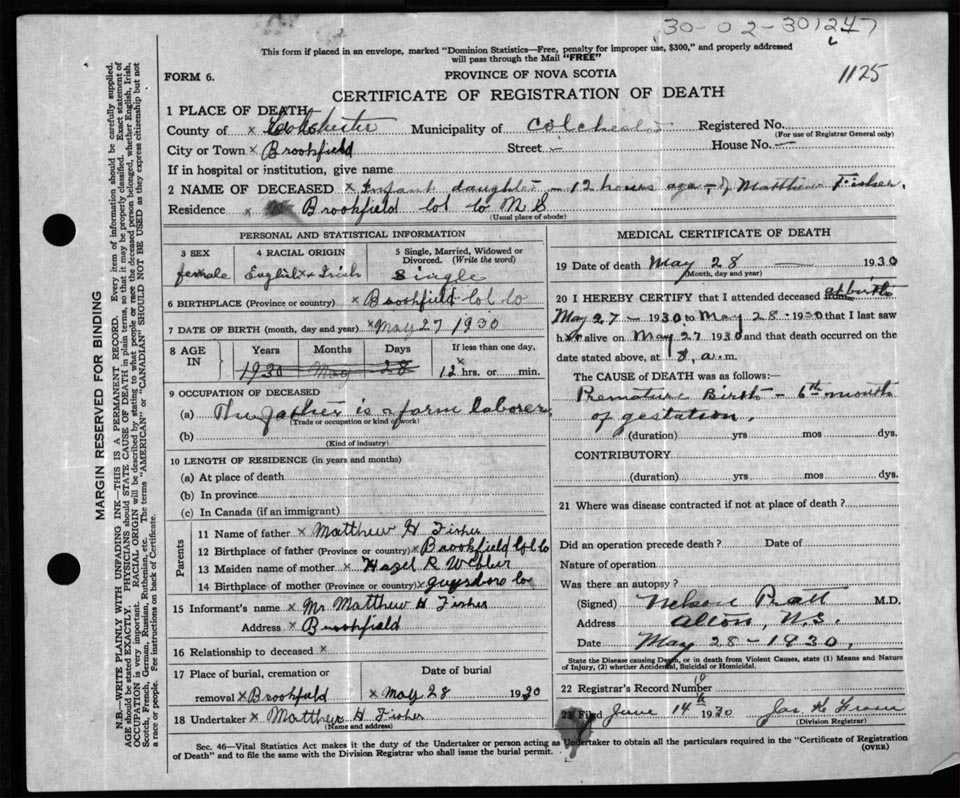 30-02-301247
1125
This form if placed in an envelope, marked "Dominion Statistics—Free, penalty for improper use, $300," and properly addressed
will pass through the Mail "FREE"
FORM 6.
PROVINCE OF NOVA SCOTIA
CERTIFICATE OF REGISTRATION OF DEATH
MARGIN RESERVED FOR BINDING
N.B.—WRITE PLAINLY WITH UNFADING INK—THIS IS A PERMANENT RECORD. Every item of information should be carefully supplied.
AGE should be stated EXACTLY. PHYSICIANS should STATE CAUSE OF DEATH in plain terms, so that it may be properly classified. Exact statement of
OCCUPATION is very important. RACIAL ORIGIN will be described by stating to what people or race the deceased person belonged, whether English, Irish,
Scotch, French, German, Russian, Ruthenian, etc. The terms "AMERICAN" or "CANADIAN" SHOULD NOT BE USED as they express citizenship but not
a race or people. See instructions on back of Certificate.
1 PLACE OF DEATH
County of x Colchester Municipality of Colchester Registered No.
(For use of Registrar General only)
City or Town x Brookfield Street — House No. —
If in hospital or institution, give name
2 NAME OF DECEASED x Infant daughter — 12 hours age — of Matthew Fisher.
Residence x Brookfield Col Co N.S
(Usual place of abode)
PERSONAL AND STATISTICAL INFORMATION
3 SEX 4 RACIAL ORIGIN 5 Single, Married, Widowed or
Divorced. (Write the word)
female English x Irish Single
6 BIRTHPLACE (Province or country) x Brookfield Col Co
7 DATE OF BIRTH (month, day and year) x May 27 1930
8 AGE IN Years Months Days If less than one day,
1930 May 28 12 hrs. or min.
9 OCCUPATION OF DECEASED
(a) The father is a farm laborer
(Trade or occupation or kind of work)
(b)
(Kind of industry)
10 LENGTH OF RESIDENCE (in years and months)
(a) At place of death
(b) In province
(c) In Canada (if an immigrant)
Parents
11 Name of father x Matthew H Fisher
12 Birthplace of father (Province or country) x Brookfield Col Co
13 Maiden name of mother x Hazel R Webber
14 Birthplace of mother (Province or country) x Guysboro Co
15 Informant's name x Mr Matthew H Fisher
Address x Brookfield
16 Relationship to deceased x
17 Place of burial, cremation or Date of burial
removal x Brookfield x May 28 1930
18 Undertaker x Matthew H Fisher
(Name and address)
MEDICAL CERTIFICATE OF DEATH
19 Date of death May 28 — 1930
(Month, day and year)
20 I HEREBY CERTIFY that I attended deceased from at birth
May 27 — 1930 to May 28 - 1930 that I last saw
her alive on May 27 1930 and that death occurred on the
date stated above, at 8, a. m.
The CAUSE of DEATH was as follows:
Premature Birth — 6th month
of gestation.
(duration) yrs mos dys.
CONTRIBUTORY
(duration) yrs mos dys.
21 Where was disease contracted if not at place of death?
Did an operation precede death? Date of
Nature of operation
Was there an autopsy?
(Signed) Nelson Pratt M.D.
Address Alton, N.S.
Date May 28 - 1930.
State the Disease causing Death, or in death from Violent Causes, state (1) Means and Nature
of Injury, (2) whether Accidental, Suicidal or Homicidal.
22 Registrar's Record Number
23 Filed June 14th 1930
(Division Registrar)
Sec. 46—Vital Statistics Act makes it the duty of the Undertaker or person acting as Undertaker to obtain all the particulars required in the "Certificate of Registration
of Death" and to file the same with the Division Registrar who shall issue the burial permit.
(OVER)